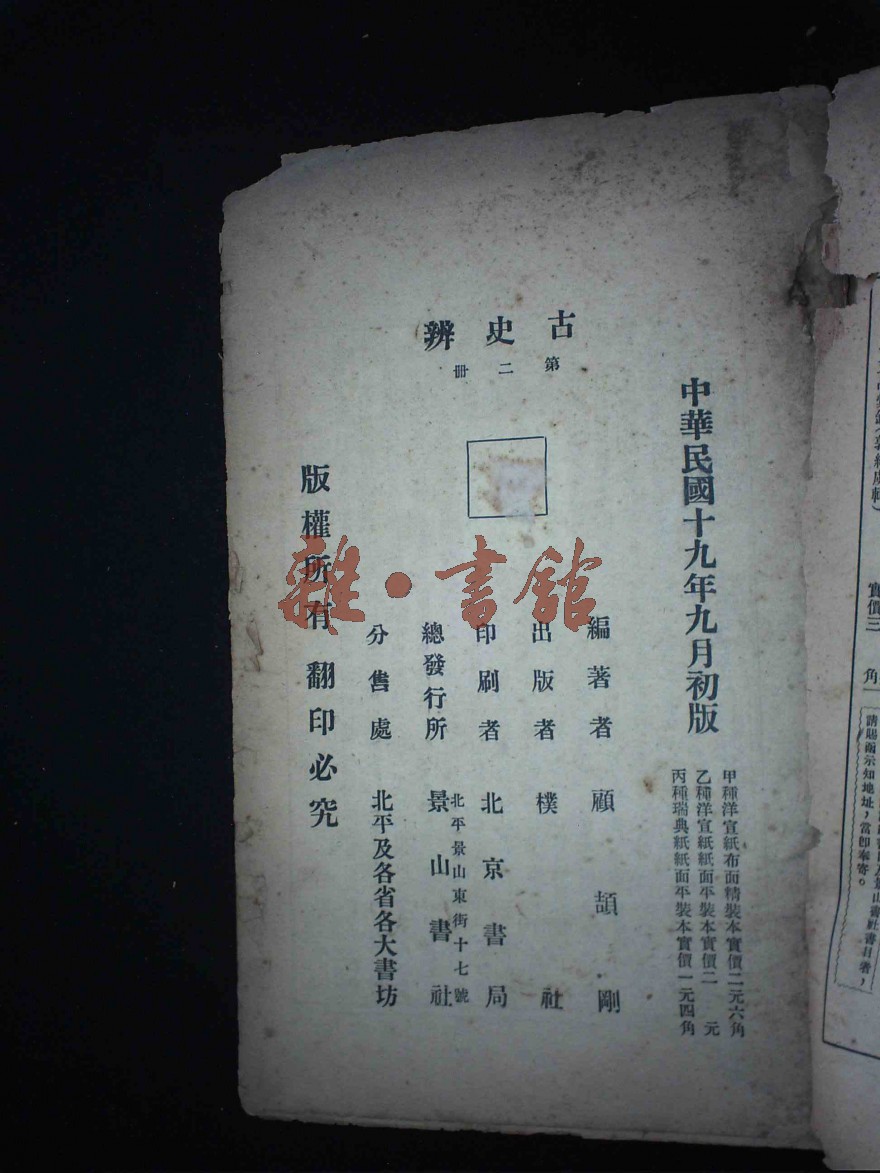 古史辨
第二冊
中華民國十九年九月初版
甲種洋宣紙布面精裝本實價二元六角
乙種洋宣紙紙面平裝本實價二元
丙種瑞典紙紙面平裝本實價一元四角
編著者 顧頡剛
出版者 樸社
印刷者 北京書局
北平景山東街十七號
總發行所 景山書社
分售處 北平及各省各大書坊
版權所有翻印必究
雜·書館
實價三角
請賜函示知地址，當卽奉寄。